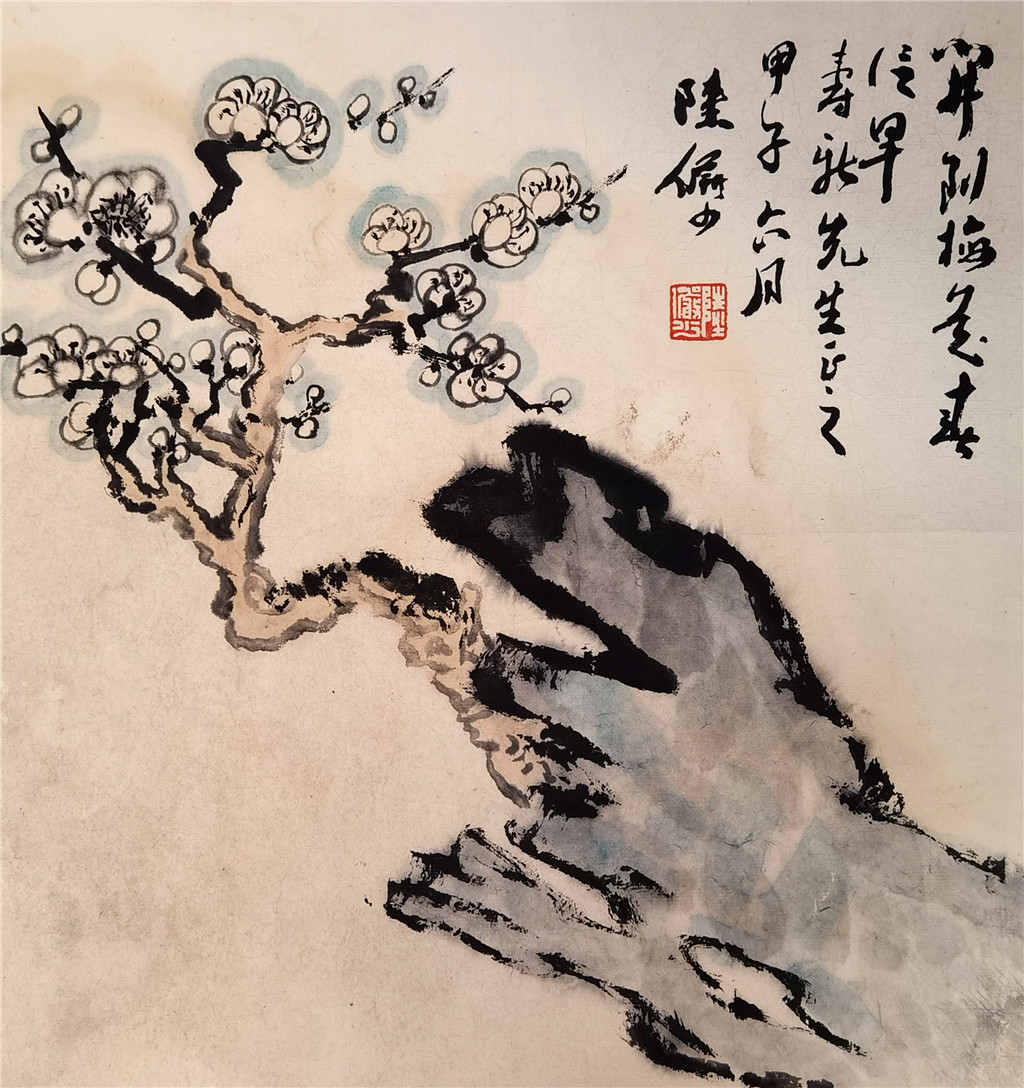 開到梅花春
信早
壽新先生正之
甲子六月
陸儼少
陸儼少